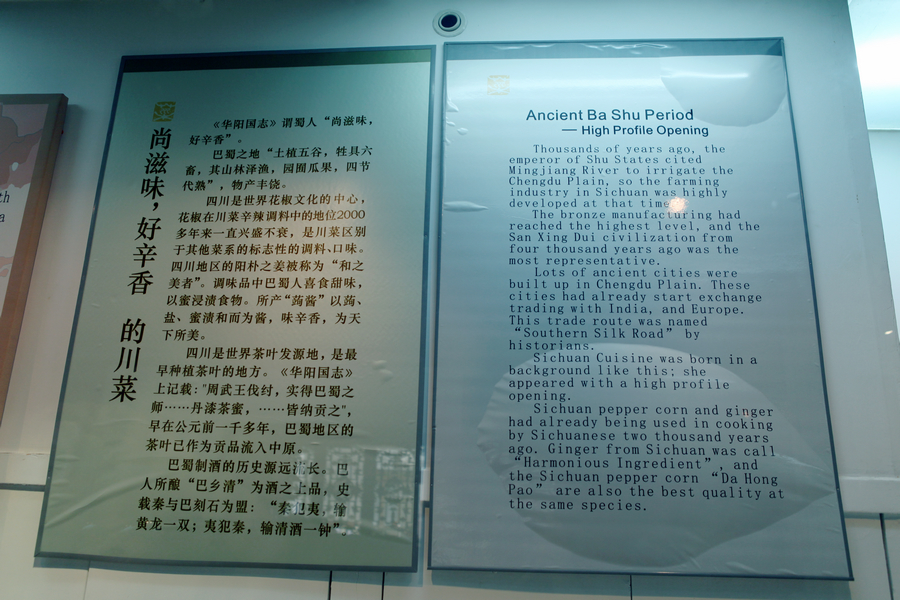 尚滋味，好辛香 的川菜
《华阳国志》谓蜀人“尚滋味，
好辛香”。
巴蜀之地“土植五谷，牲具六
畜，其山林泽渔，园囿瓜果，四节
代熟”，物产丰饶。
四川是世界花椒文化的中心，
花椒在川菜辛辣调料中的地位2000
多年来一直兴盛不衰，是川菜区别
于其他菜系的标志性的调料、口味。
四川地区的阳朴之姜被称为“和之
美者”。调味品中巴蜀人喜食甜味，
以蜜浸渍食物。所产“蒟酱”以蒟、
盐、蜜渍和而为酱，味辛香，为天
下所美。
四川是世界茶叶发源地，是最
早种植茶叶的地方。《华阳国志》
上记载："周武王伐纣，实得巴蜀之
师……丹漆茶蜜，……皆纳贡之",
早在公元前一千多年，巴蜀地区的
茶叶已作为贡品流入中原。
巴蜀制酒的历史源远流长。巴
人所酿“巴乡清”为酒之上品，史
载秦与巴刻石为盟：“秦犯夷，输
黄龙一双；夷犯秦，输清酒一钟”。
Ancient Ba Shu Period
— High Profile Opening
Thousands of years ago, the
emperor of Shu States cited
Mingjiang River to irrigate the
Chengdu Plain, so the farming
industry in Sichuan was highly
developed at that time
The bronze manufacturing had
reached the highest level, and the
San Xing Dui civilization from
four thousand years ago was the
most representative.
Lots of ancient cities were
built up in Chengdu Plain. These
cities had already start exchange
trading with India, and Europe.
This trade route was named
“Southern Silk Road” by
historians.
Sichuan Cuisine was born in a
background like this; she
appeared with a high profile
opening.
Sichuan pepper corn and ginger
had already being used in cooking
by Sichuanese two thousand years
ago. Ginger from Sichuan was call
“Harmonious Ingredient”, and
the Sichuan pepper corn “Da Hong
Pao” are also the best quality at
the same species.